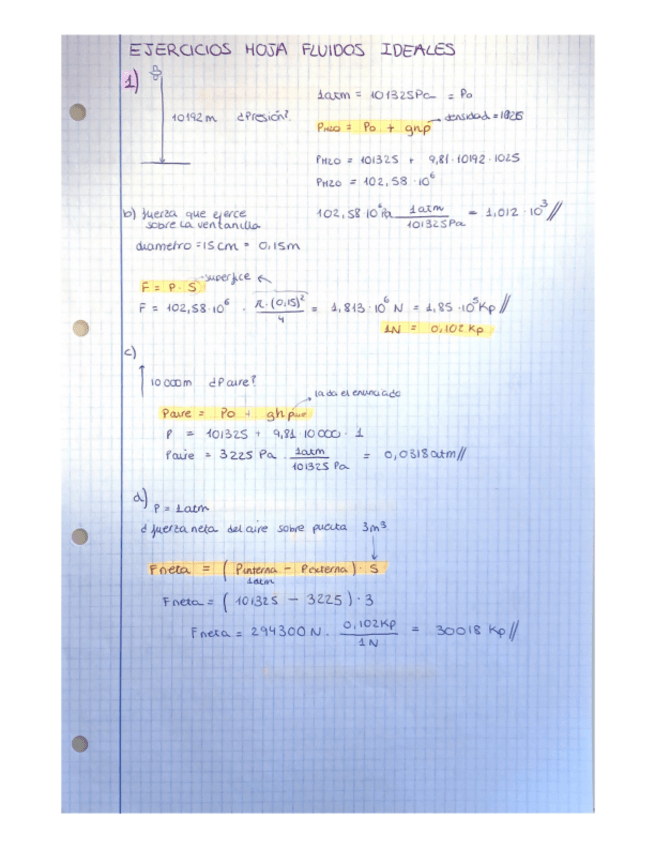 EJERCICIOS HOJA FLUIDOS IDEALES
1)
10192m ¿Presión?
1atm = 101325Pa = Po
densidad = 1025
PH2O = Po + ghρ
PH2O = 101325 + 9,81·10192·1025
PH2O = 102,58·10⁶
102,58·10⁶Pa · 1atm / 101325Pa = 1,012·10³ //
b) fuerza que ejerce
sobre la ventanilla
diametro = 15cm = 0,15m
superfice
F = P·S
F = 102,58·10⁶ · π·(0,15)² / 4 = 1,813·10⁶ N = 1,85·10⁵ Kp //
1N = 0,102 Kp
c)
10000m ¿Paire?
la da el enunciado
Paire = Po + ghρaire
P = 101325 + 9,81·10000·1
Paire = 3225 Pa · 1atm / 101325 Pa = 0,0318atm //
d) P = 1atm
¿fuerza neta del aire sobre puerta 3m³
Fneta = (Pinterna - Pexterna)·S
1atm
Fneta = (101325 - 3225)·3
Fneta = 294300 N · 0,102Kp / 1N = 30018 Kp //